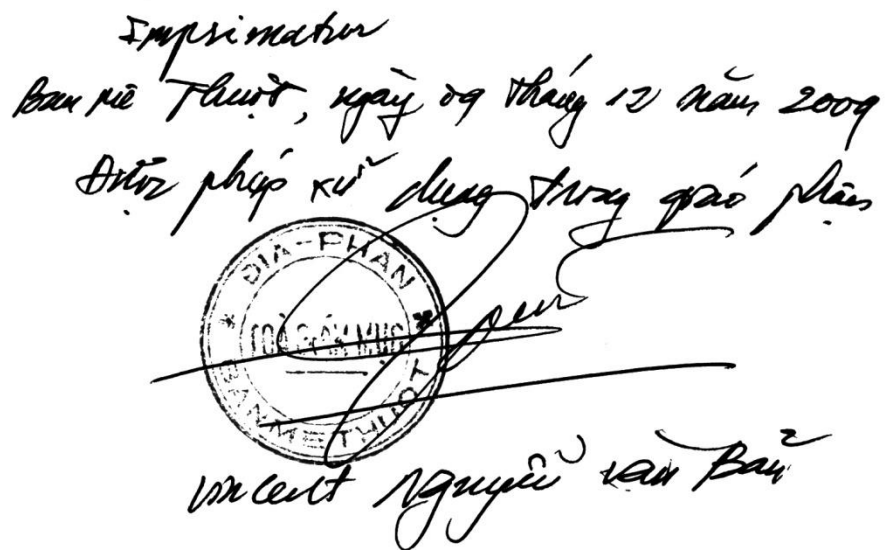 Imprimatur
Ban Mê Thuột, ngày 09 tháng 12 năm 2009
Được phép xử dụng trong giáo phận
ĐỊA-PHẬN
TÒA GIÁM MỤC
BANMETHUOT
Vincent Nguyễn Văn Bản